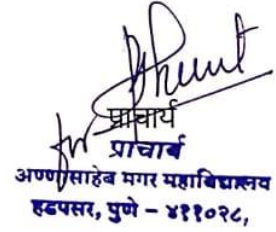 for
प्राचार्य
प्राचार्य
अण्णासाहेब मगर महाविद्यालय
हडपसर, पुणे - ४११०२८,